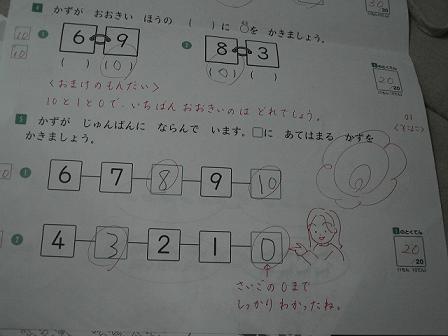 4 かずが おおきい ほうの ( )に ○を かきましょう。
10
10
1 6 9
( ) (○)
2 8 3
(○) ( )
のとくてん
20
/20
〈おまけのもんだい〉
10と1と0で、いちばん おおきいのは どれでしょう。
5 かずが じゅんばんに ならんで います。□に あてはまる かずを
かきましょう。
1 6 7 8 9 10
2 4 3 2 1 0
5のとくてん
20
/20
さいごの0まで
しっかり わかったね。